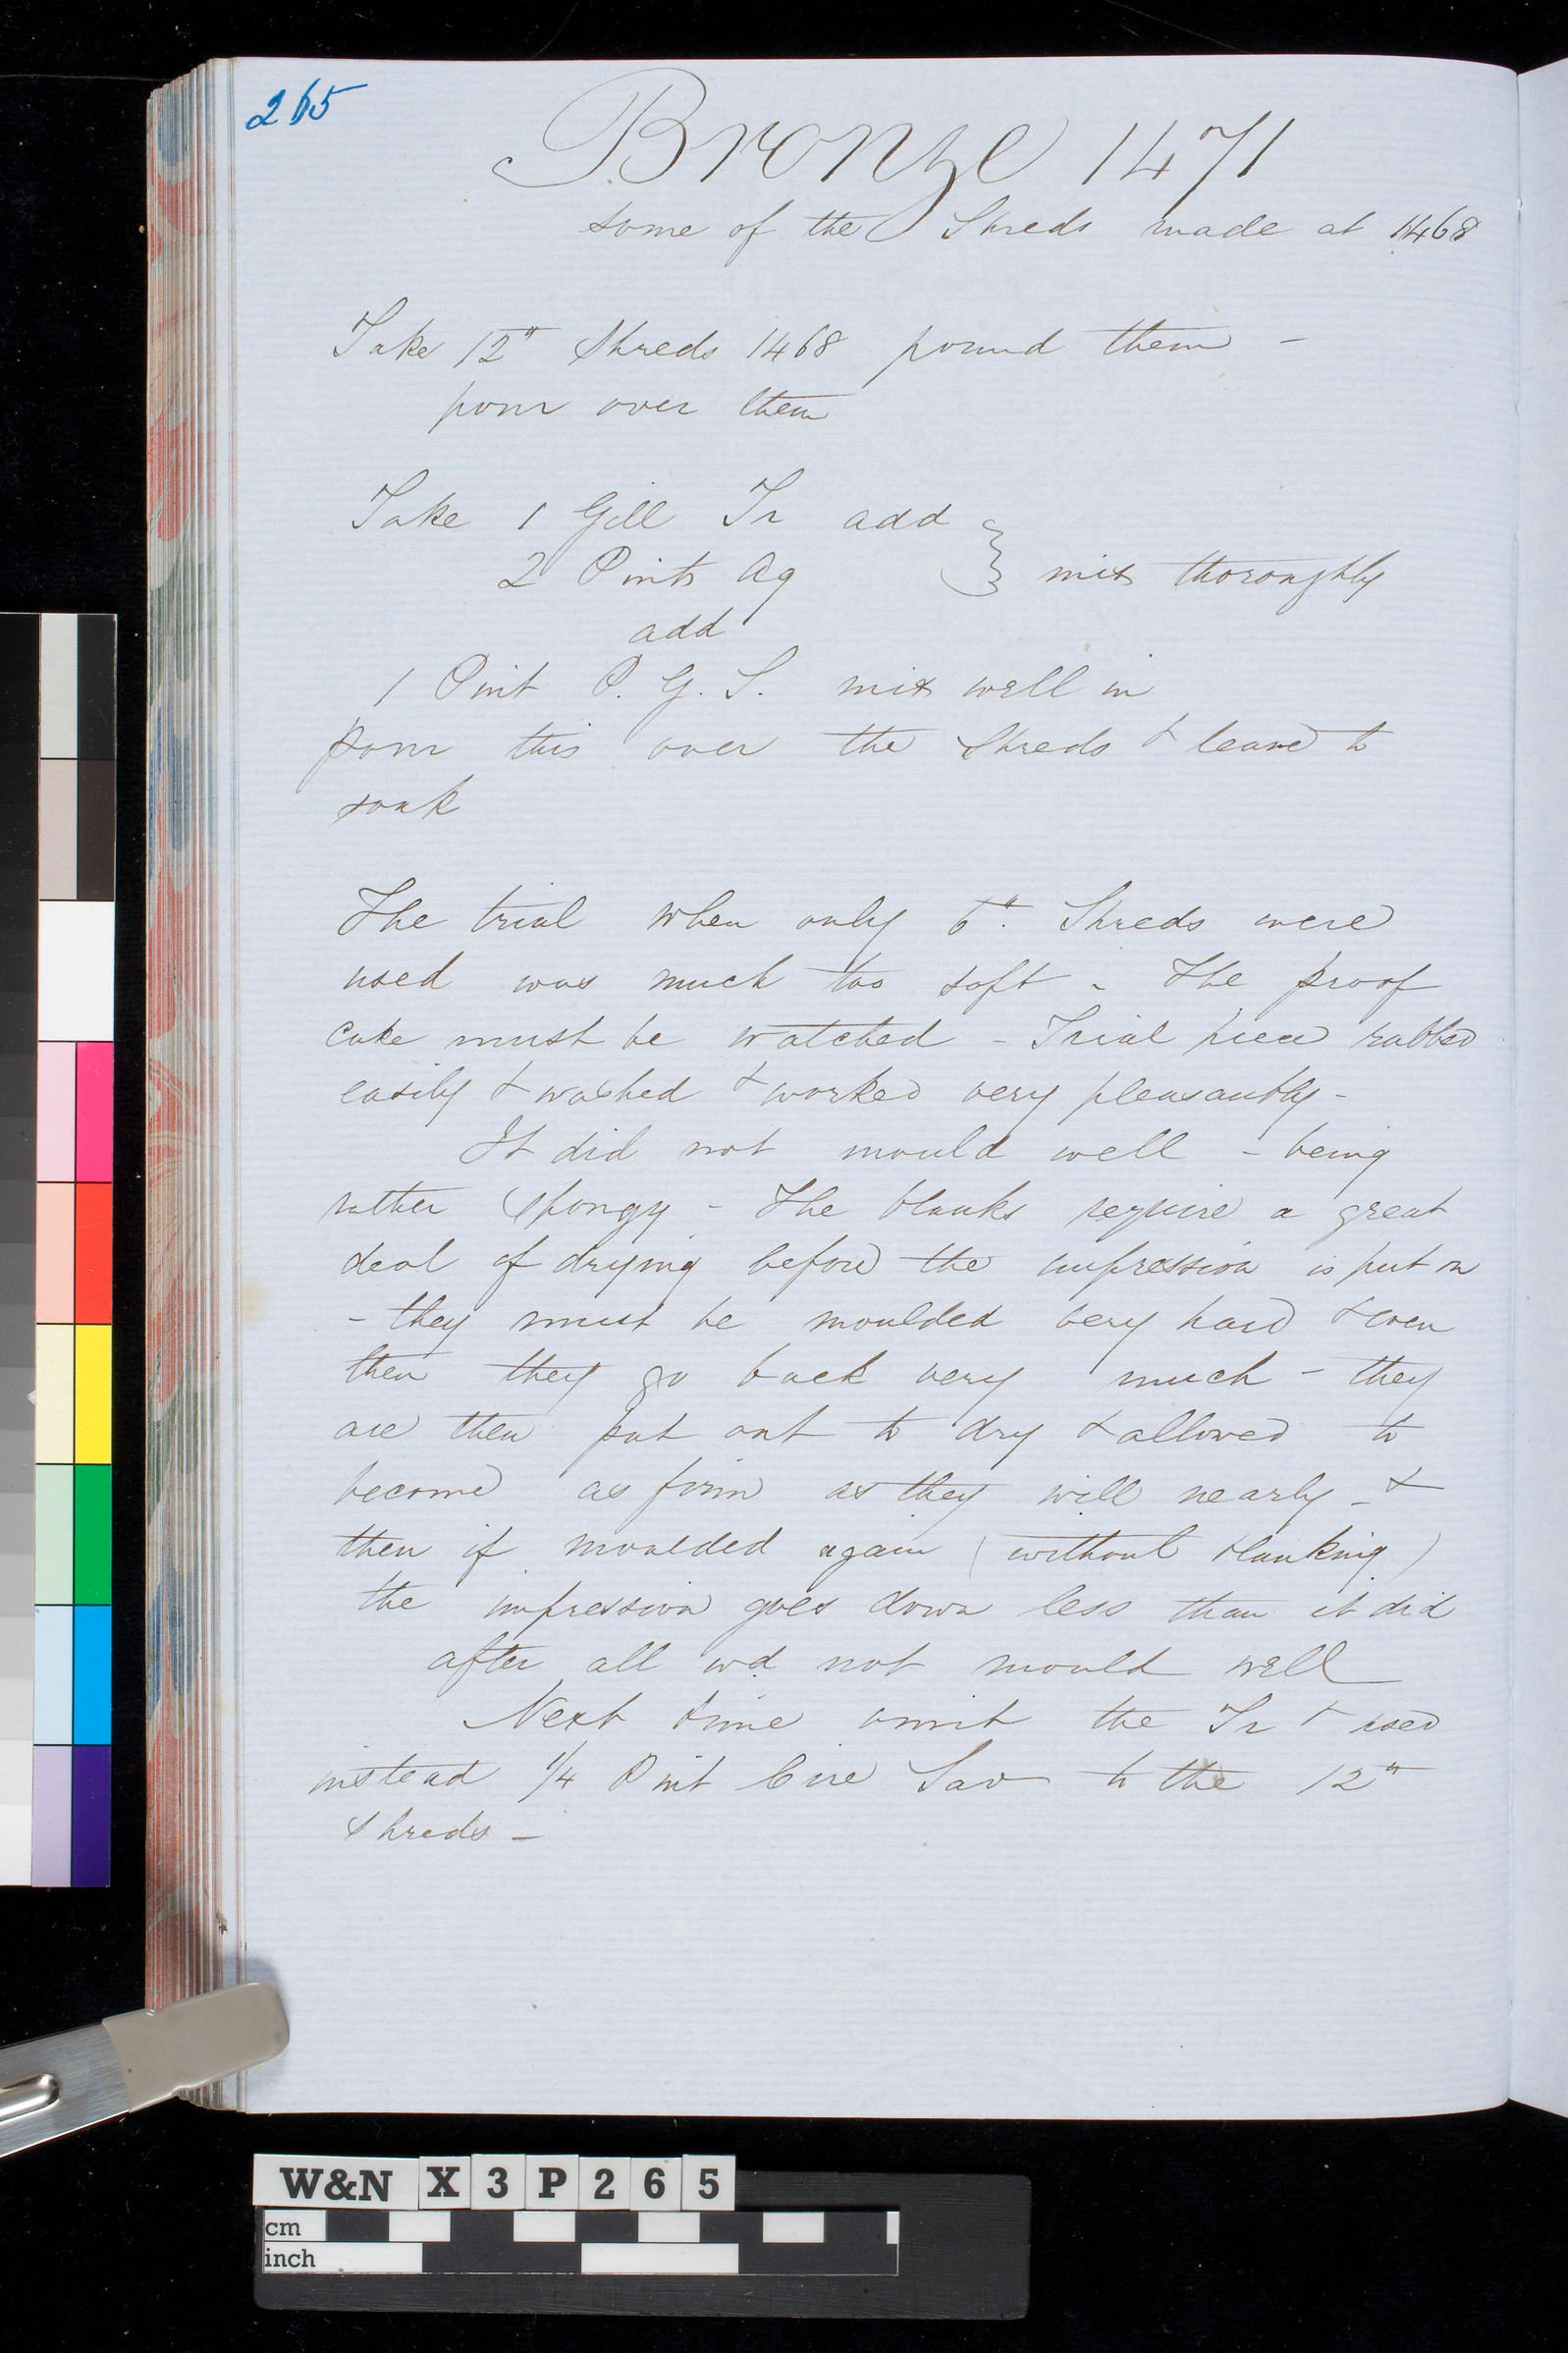 265
Bronze 1471
some of the Shreds made at 1468
Take 12" Shreds 1468 pound them -
pour over them
Take 1 Gill Tr add
2 Pints Aq } mix thoroughly
add
1 Pint P. G. S. mix well in
pour this over the Shreds & leave to
soak
The trial when only 6". Shreds were
used was much too soft - The proof
cake must be watched - Trial piece rubbed
easily & washed & worked very pleasantly -
It did not mould well - being
rather spongy - The blanks require a great
deal of drying before the impression is put on
- they must be moulded very hard & even
then they go back very much - they
are then put out to dry & allowed to
become as firm as they will nearly - &
then if moulded again (without blanking)
the impression goes down less than it did
after all wd not mould well
Next time omit the Tr & use
instead 1/4 Pint Cire Sav to the 12"
Shreds -
W&N X 3 P 2 6 5
cm
inch